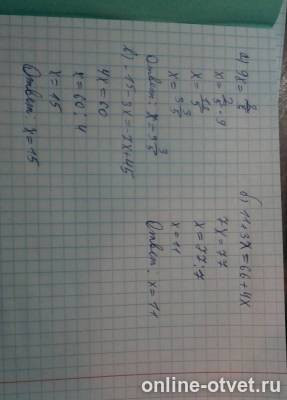 а) 9x =
Ответ: x =
б) 11+3x=66+4x
7x=77
x=77:7
x=11
Ответ: x=11
в) -15-3x=-7x+45
4x=60
x=60:4
x=15
Ответ: x=15
online-otvet.ru